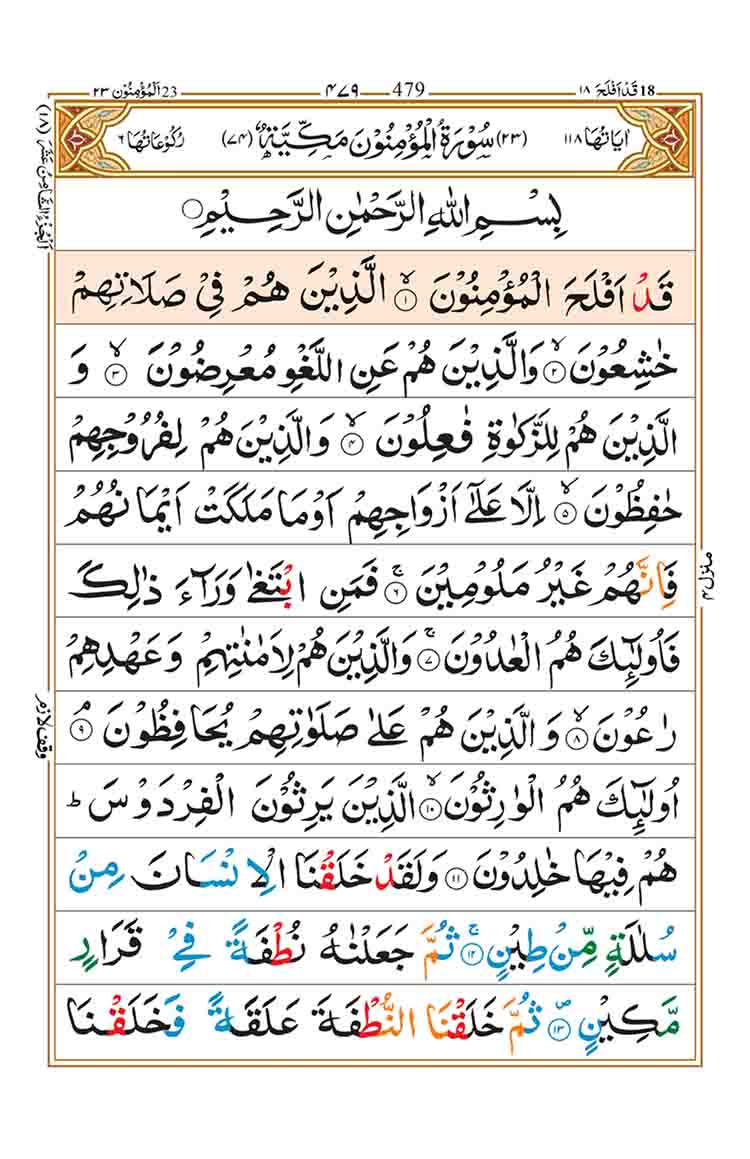 18 قَدْ اَفْلَحَ ١٨ 479 ۴۷۹ 23 اَلْمُؤْمِنُوْن ٢٣
اٰيَاتُهَا ١١٨ (٢٣) سُوْرَةُ الْمُؤْمِنُوْنَ مَكِّيَّةٌ (٧٤) رُكُوْعَاتُهَا ٦
بِسْمِ اللّٰهِ الرَّحْمٰنِ الرَّحِيْمِ ○
قَدْ اَفْلَحَ الْمُؤْمِنُوْنَ ۙ ١ الَّذِيْنَ هُمْ فِيْ صَلَاتِهِمْ
خٰشِعُوْنَ ۙ ٢ وَالَّذِيْنَ هُمْ عَنِ اللَّغْوِ مُعْرِضُوْنَ ۙ ٣ وَ
الَّذِيْنَ هُمْ لِلزَّكٰوةِ فٰعِلُوْنَ ۙ ۴ وَالَّذِيْنَ هُمْ لِفُرُوْجِهِمْ
حٰفِظُوْنَ ۙ ٥ اِلَّا عَلٰٓى اَزْوَاجِهِمْ اَوْ مَا مَلَكَتْ اَيْمَانُهُمْ
فَاِنَّهُمْ غَيْرُ مَلُوْمِيْنَ ۚ ٦ فَمَنِ ابْتَغٰى وَرَآءَ ذٰلِكَ
فَاُولٰٓئِكَ هُمُ الْعٰدُوْنَ ۚ ٧ وَالَّذِيْنَ هُمْ لِاَمٰنٰتِهِمْ وَعَهْدِهِمْ
رٰعُوْنَ ۙ ٨ وَالَّذِيْنَ هُمْ عَلٰى صَلَوٰتِهِمْ يُحَافِظُوْنَ ۘ ٩
اُولٰٓئِكَ هُمُ الْوٰرِثُوْنَ ۙ ١٠ الَّذِيْنَ يَرِثُوْنَ الْفِرْدَوْسَ ؕ
هُمْ فِيْهَا خٰلِدُوْنَ ١١ وَلَقَدْ خَلَقْنَا الْاِنْسَانَ مِنْ
سُلٰلَةٍ مِّنْ طِيْنٍ ۚ ١٢ ثُمَّ جَعَلْنٰهُ نُطْفَةً فِيْ قَرَارٍ
مَّكِيْنٍ ۪ ١٣ ثُمَّ خَلَقْنَا النُّطْفَةَ عَلَقَةً فَخَلَقْنَا
اَلْجُزْءُ الثَّامِنُ عَشَرَ (١٨)
منزل ۴
وقف لازم